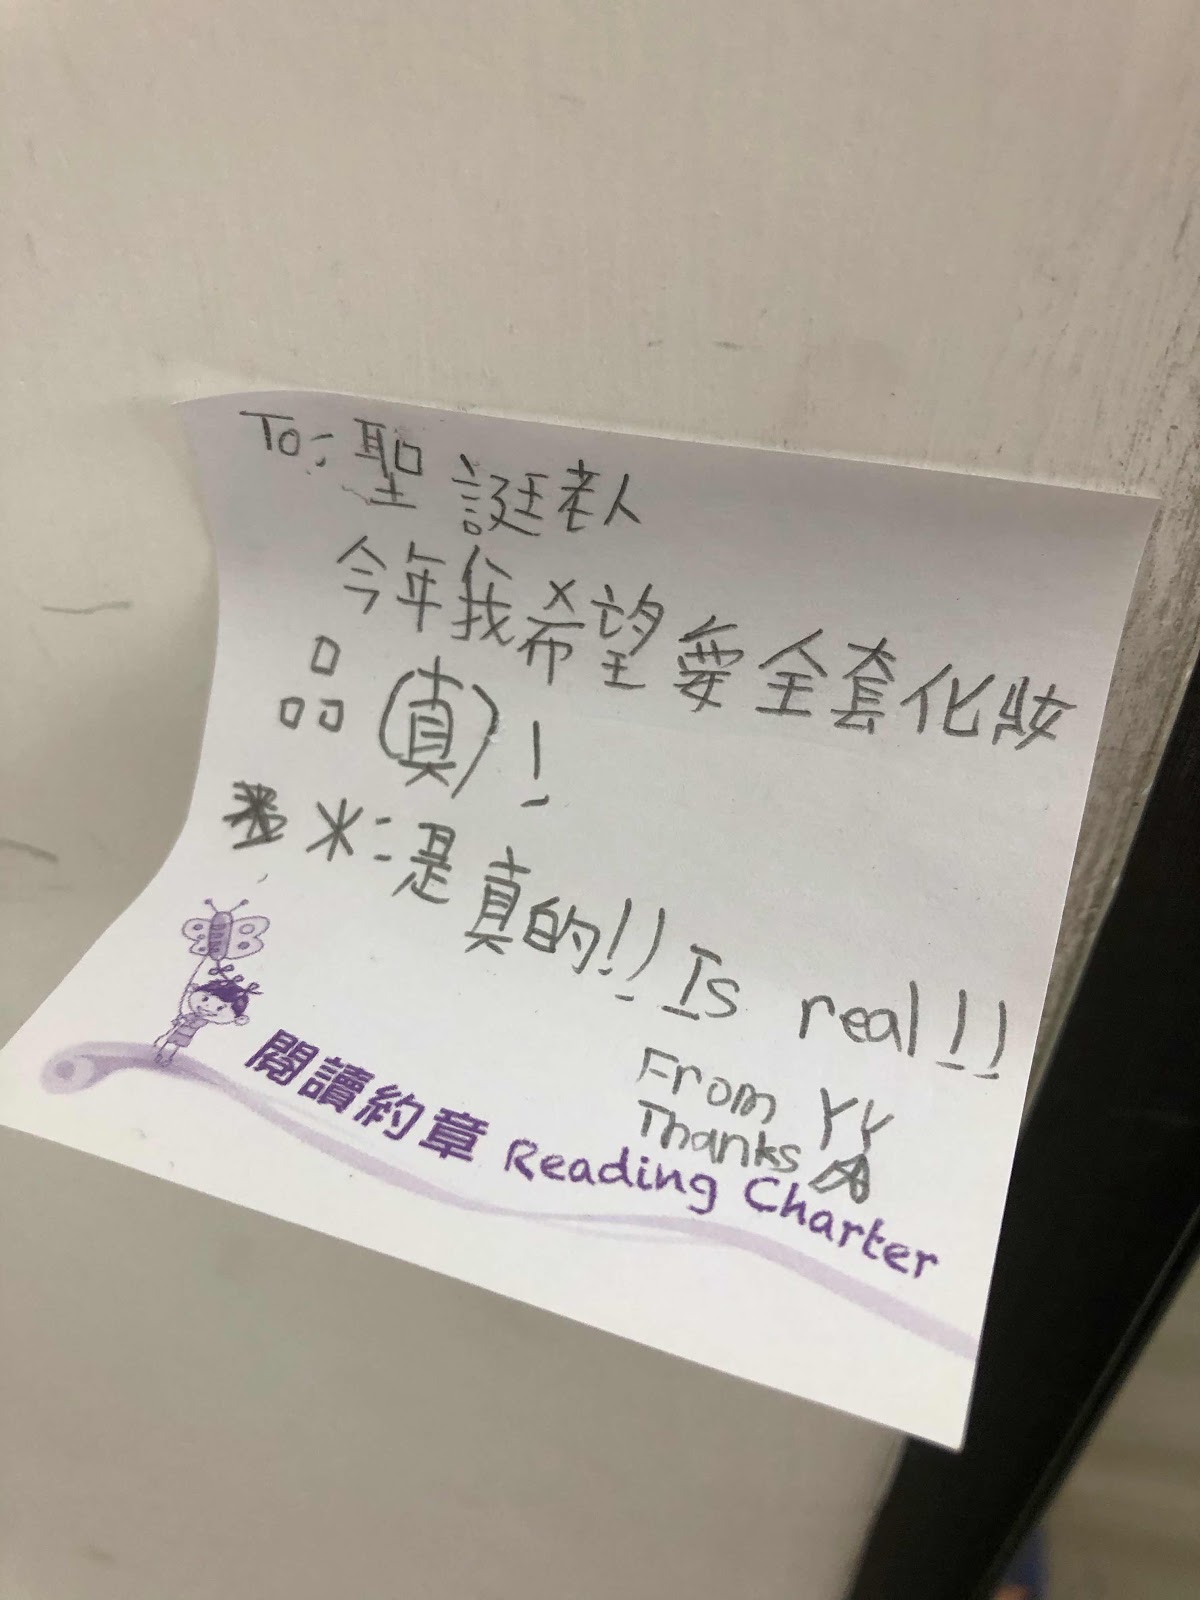 To: 聖誕老人
今年我希望要全套化妝
品(真)!
米:是真的!! Is real!!
From YY
Thanks
閱讀約章 Reading Charter